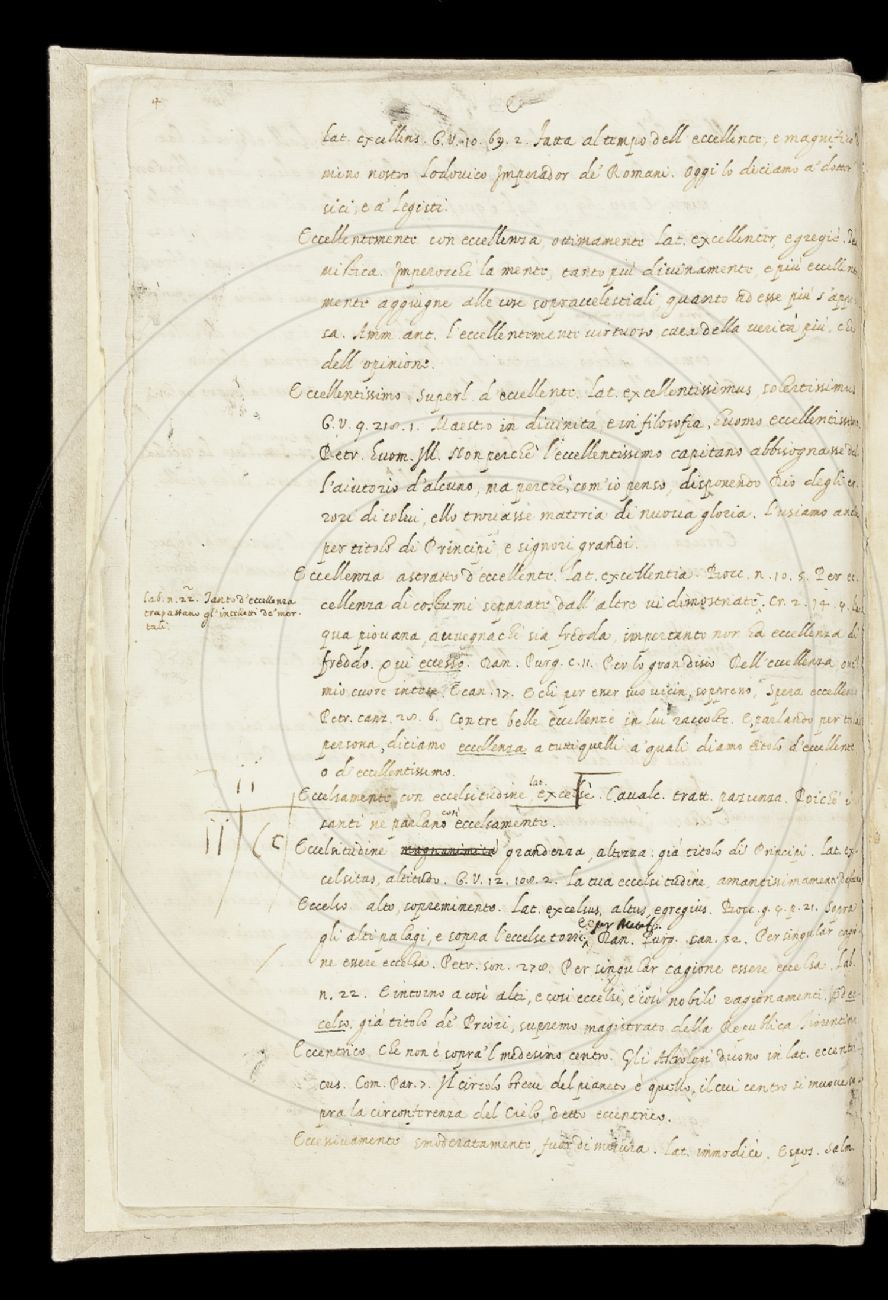 4
lat. excellens. G.V. 10. 69. 2. Fatta al tempo dell eccellente, e magnifico
mino nostro Lodovico Imperador de Romani. Oggi lo diciamo a' dottor
sici, e a' legisti.
Eccellentemente con eccellenza, ottimamente. Lat. excellenter, egregiè.
Imperocchè la mente, tanto più divinamente, e più eccellen
mente aggiugne alle cose sopraccelestiali quanto ad esse più s'appr
sa. Amm. ant. l'eccellentemente virtuoso cura della verità più, che
dell opinione.
Eccellentissimo. Superl. d'eccellente. Lat. excellentissimus, solertissimus
G.V. 9. 218. 1. Maestro in divinità, e in filosofia, huomo eccellentissimo.
Petr. huom. Ill. Non perchè l'eccellentissimo capitano abbisognasse del
l'aiutorio d'alcuno, ma perchè, com'io penso, disponendo Dio degli er
rori di colui, ello trovasse materia di nuova gloria. l'usiamo anche
per titolo di Principi, e signori grandi.
Eccellenza astratto d'eccellente. Lat. excellentia. Bocc. n. 10. 5. Per ec
lab. n. 22. Tanto d'eccellenza
trapassano gl'intelletti de' mor-
tali.
cellenza di costumi separate dall'altre vi dimostrate. Cr. 2. 14. 4.
qua piovana, avvegnachè sia fredda, impertanto non ha eccellenza di
freddo. Qui eccesso. Dan. Purg. c. 11. Per lo gran disio Dell'eccellenza ove
mio cuore intese. E can. 17. E chi per esser suo vicin, soppresso, Spera eccellenza
Petr. canz. 28. 6. Con tre belle eccellenze in lui raccolte. E parlando per
persona, diciamo eccellenza a tutti quelli a' quali diamo titolo d'eccellente
o d'eccellentissimo.
Eccelsamente con eccelsitudine, lat. excelsè. Cavalc. tratt. pazienza. Poichè i
santi ne parlano così eccelsamente.
ii
ii
(c
Eccelsitudine magnanimità grandezza, altezza: già titolo di Principi. Lat. ex
celsitas, altitudo. G.V. 12. 108. 2. La tua eccelsitudine, amantissimamente
Eccelso alto, sopreminente. Lat. excelsus, altus, egregius. Bocc. g. 4. p. 21. Sopra
gli alti palagi, e sopra l'eccelse torri. E per Metaf. Dan. Purg. can. 32. Per singular cagio
ne essere eccelsa. Petr. son. 278. Per singular cagione essere eccelsa. Lab.
n. 22. E intorno a così alti, e così eccelsi, e così nobili ragionamenti. Ed ec-
celso. già titolo de' Priori, supremo magistrato della Republica Fiorentina
Eccentrico Che non è sopra'l medesimo centro. Gli Astrologi dicono in lat. eccentri
cus. Com. Par. 7. Il circolo breve del pianeto è quello, il cui centro si muove so
pra la circonferenza del Cielo detto eccentrico.
Eccessivamente smoderatamente, fuor di misura. Lat. immodicè. Espos. Salm.